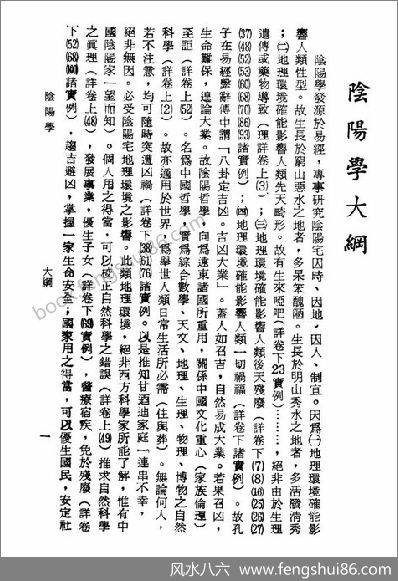 陰陽學大綱
陰陽學發源於易經,專事研究陰陽宅因時、因地、因人、制宜。因爲㈠地理環境確能影
響人類性型。故生長於窮山惡水之地者,多呆笨醜陋。生長於明山秀水之地者,多活潑清秀
;㈡地理環境確能影響人類先天畸形。故有生來啞吧(詳卷下23實例)………,絕非由於生理
遺傳或藥物導致(理詳卷上(3);㈢地理環境確能影響人類後天殘廢(詳卷下(7)(8)(16)(25)(26)(27)
(37)(48)(52)(53)(60)(68)(70)(86)(93)諸實例);㈣地理環境確能影響人類一切禍福(詳卷下諸實例)。故孔
子在易經繫辭傳中謂「八卦定吉凶。吉凶大業」。蓋人如召吉,自然易成大業。若果召凶,
生命難保,遑論大業。故陰陽哲學,向爲遠東諸國所重用,關係中國文化重心(家族倫理)
至鉅(詳卷上52)。名爲中國哲學,實爲綜合數學、天文、地理、生理、物理、博物之自然
科學(詳卷上(2)。故亦適用於世界,爲舉世人類日常生活所必需(住與葬)。無論何人,
若不注意,均可隨時突遭凶禍(詳卷下38 61 76諸實例)。以是推知甘迺迪家庭一連串不幸,
絕非無因。必受陰陽宅地理環境之影響。此類地理環境,絕非西方科學家所能了解,惟有中
國陰陽家一望而知)。個人用之得當,可以校正自然科學之錯誤(詳卷上(49)推求自然科學
之眞理(詳卷上(48),發展事業,優生子女(詳卷下(89)實例),醫療宿疾,免於殘廢(詳卷
下(52)(68)諸實例),趨吉避凶,掌握一家生命安全;國家用之得當,可以優生國民,安定社
陰陽學
大綱
一
风水八六 www.fengshui86.com